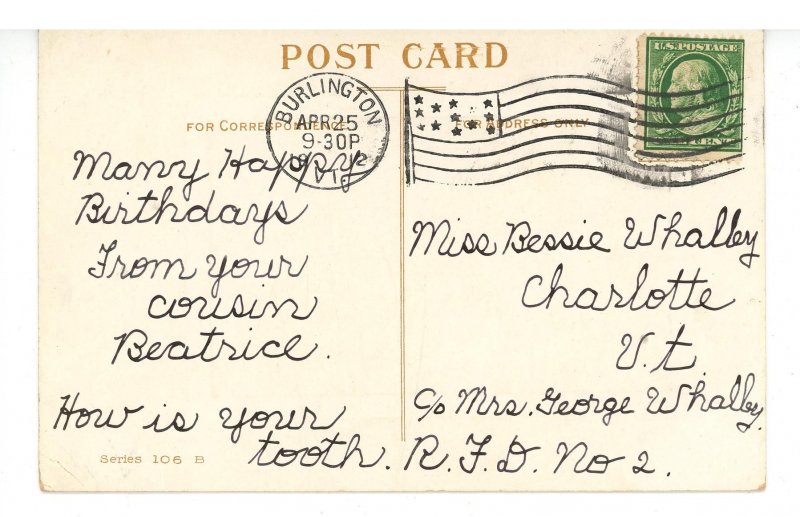 POST CARD
U.S. POSTAGE
BURLINGTON
APR 25
9-30P
VT.
FOR CORRESPONDENCE
FOR ADDRESS ONLY
Many Happy
Birthdays
From your
cousin
Beatrice.
How is your
tooth.
Series 106 B
Miss Bessie Whalley
Charlotte
V.t.
c/o Mrs. George Whalley.
R.F.D. No 2.